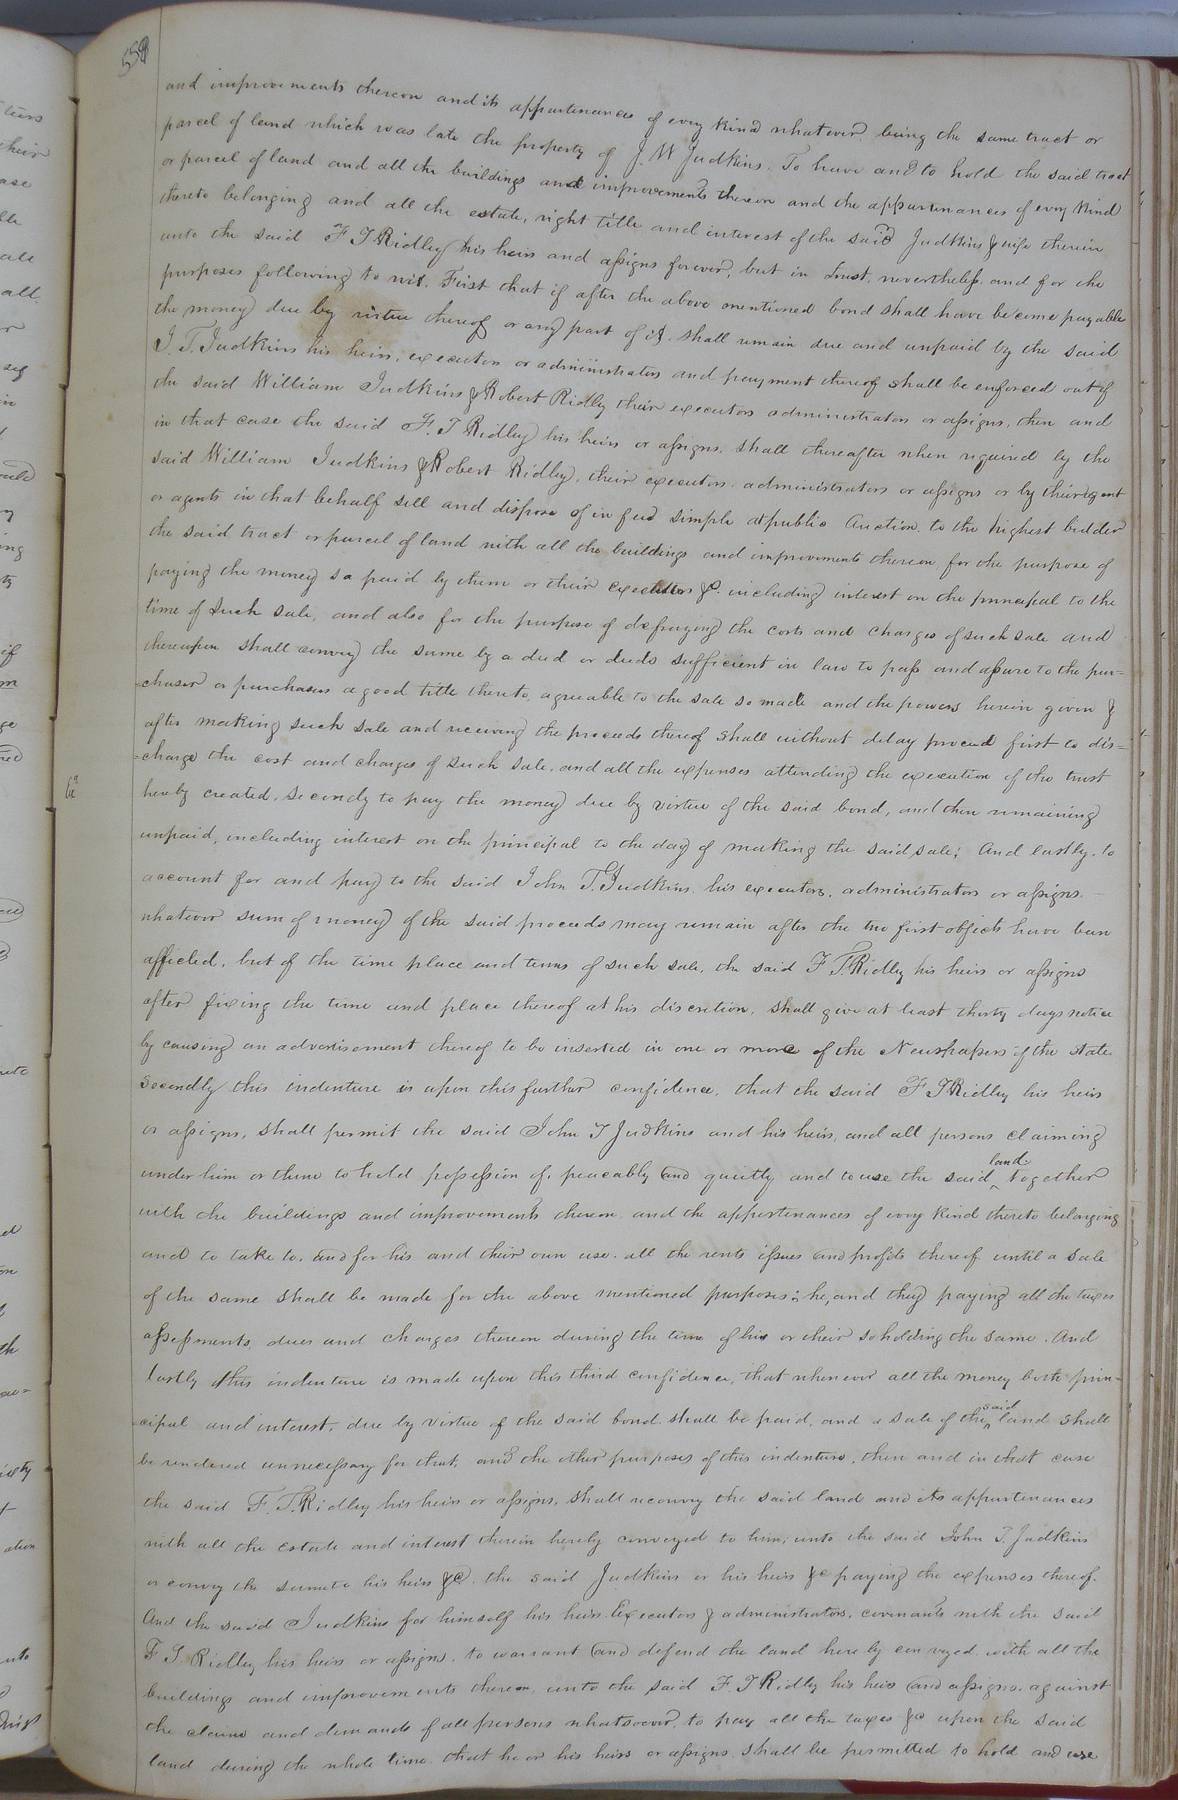 558
and improvements thereon and its appurtenances of every kind whatever being the same tract or
parcel of land which was late the property of J. W Judkins. To have and to hold the said tract
or parcel of land and all the buildings and improvements thereon and the appurtenances of every kind
thereto belonging and all the estate, right title and interest of the said Judkins & wife therein
unto the said F T Ridley his heirs and assigns forever, but in trust, nevertheless, and for the
purposes following to wit. First that if after the above mentioned bond shall have become payable
the money due by virtue thereof or any part of it shall remain due and unpaid by the said
J. T. Judkins his heirs, executors or administrators and payment thereof shall be enforced out of
the said William Judkins & Robert Ridley their executors administrators or assigns, then and
in that case the said F. T Ridley his heirs or assigns, shall thereafter when required by the
said William Judkins & Robert Ridley, their executors administrators or assigns or by their agent
or agents in that behalf sell and dispose of in fee simple at public Auction to the highest bidder
the said tract or parcel of land with all the buildings and improvements thereon for the purpose of
paying the money so paid by them or their executors &c. including interest on the principal to the
time of such sale, and also for the purpose of defraying the costs and charges of such sale and
thereupon shall convey the same by a deed or deeds sufficient in law to pass and assure to the pur=
=chaser or purchasers a good title thereto, agreeable to the sale so made and the powers herein given &
after making such sale and receiving the proceeds thereof shall without delay proceed first to dis=
=charge the cost and charges of such sale, and all the expenses attending the execution of the trust
hereby created, secondly to pay the money due by virtue of the said bond, and then remaining
unpaid, including interest on the principal to the day of making the said sale; And lastly, to
account for and pay to the said John T. Judkins his executors, administrators or assigns
whatever sum of money of the said proceeds may remain after the two first objects have been
affected, but of the time place and terms of such sale, the said F T. Ridley his heirs or assigns
after fixing the time and place thereof at his discretion, shall give at least thirty days notice
by causing an advertisement thereof to be inserted in one or more of the Newspapers of the state
Secondly this indenture is upon this further confidence, that the said F T Ridley his heirs
or assigns, shall permit the said John T Judkins and his heirs, and all persons claiming
under him or them to hold possession of, peacably and quietly and to use the said land together
with the buildings and improvements thereon and the appurtenances of every kind thereto belonging
and to take to, and for his and their own use, all the rents issues and profits thereof until a sale
of the same shall be made for the above mentioned purposes; he, and they paying all the taxes
assessments, dues and charges thereon during the time of his or their so holding the same. And
lastly this indenture is made upon this third confidence, that whenever all the money both prin=
=cipal and interest, due by virtue of the said bond shall be paid, and a sale of the said land shall
be rendered unnecessary for that, and the other purposes of this indenture, then and in that case
the said F. T. Ridley his heirs or assigns, shall reconvey the said land and its appurtenances
with all the estate and interest therein hereby conveyed to him, unto the said John T. Judkins
or convey the same to his heirs &c. the said Judkins or his heirs &c paying the expenses thereof.
And the said Judkins for himself his heirs Executors & administrators, covenants with the said
F T. Ridley his heirs or assigns, to warrant and defend the land hereby conveyed with all the
buildings and improvements thereon, unto the said F. T Ridley his heirs and assigns, against
the claims and demands of all persons whatsoever, to pay all the taxes &c upon the said
land during the whole time that he or his heirs or assigns shall be permitted to hold and use